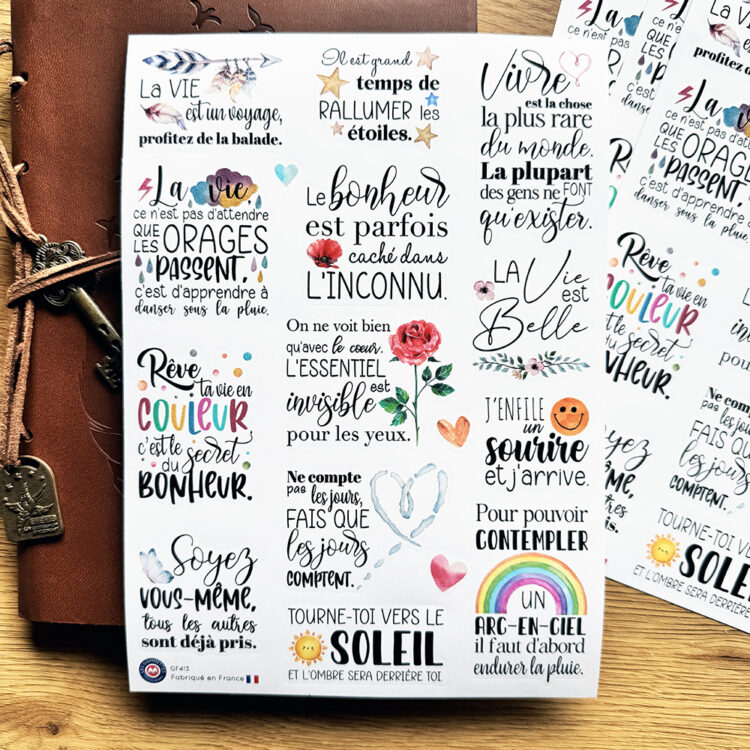 La VIE
est un voyage,
profitez de la balade.
La vie,
ce n'est pas d'attendre
QUE
LES ORAGES
PASSENT,
c'est d'apprendre à
danser sous la pluie.
Rêve
ta vie en
COULEUR
c'est le
secret
du
BONHEUR.
Soyez
VOUS-MÊME,
tous les autres
sont déjà pris.
GF413
Fabriqué en France
Il est grand
temps de
RALLUMER les
étoiles.
Le bonheur
est parfois
caché dans
L'INCONNU.
On ne voit bien
qu'avec le cœur.
L'ESSENTIEL
est
invisible
pour les yeux.
Ne compte
pas les jours,
FAIS QUE
les jours
COMPTENT.
TOURNE-TOI VERS LE
SOLEIL
ET L'OMBRE SERA DERRIÈRE TOI
Vivre
est la chose
la plus rare
du monde.
La plupart
des gens ne FONT
qu'exister.
LA Vie
est
Belle
J'ENFILE
un
sourire
et j'arrive.
Pour pouvoir
CONTEMPLER
UN
ARC-EN-CIEL
il faut d'abord
endurer la pluie.
La vie
ce n'est
QUE
LES
PASS
c'est d'
danser
La V
profitez d
La vie,
ce n'est pas d'att
QUE
LES ORAG
PASSENT,
c'est d'apprend
danser sous la pluie
Rêve
ta vie en
COULEUR
c'est le
secret
du
BONHEUR.
On
qu'
L'E
inv
pou
Soyez
US-MÊME,
les autres
déjà pris.
Ne compte
pas les jours,
FAIS QUE
les jours
COMPTENT.
TOURNE-TOI VERS
SOLE
ET L'OMBRE SERA DERRIÈRE